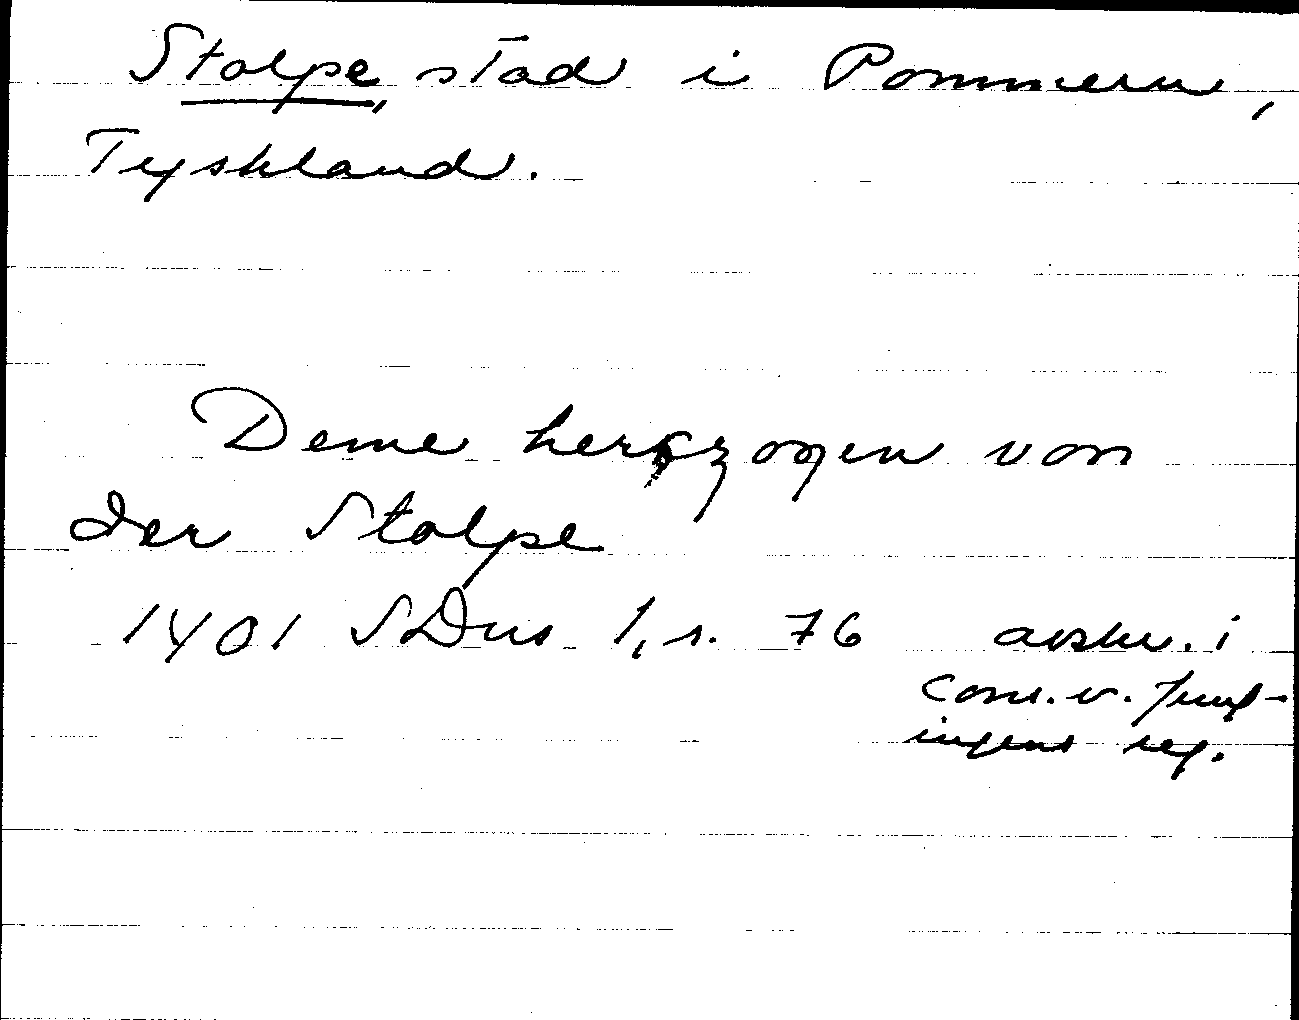 Stolpe, stad i Pommern,
Tyskland.
Deme herczogen von
der Stolpe
1401 SDns 1, s. 76 avskr. i
Conr. v. Jung-
ingens reg.